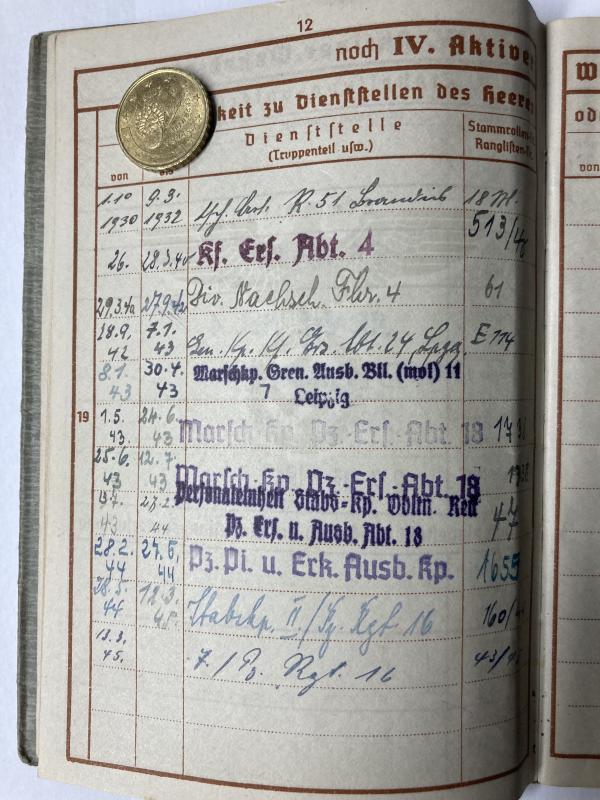 12
noch IV. Aktive
keit zu Dienststellen des Heere
von
Dienststelle
(Truppenteil usw.)
Stammrollen-
Ranglisten-
von
W
od
1.10 9.3.
1930 1932 R. 51 18
513/40
26. 28.3.40 Kf. Ers. Abt. 4
29.3.40 27.9.42 Div. Nachsch. Fhr. 4 61
28.9. 7.1.
42 43 Gen. Kp. Kf. Ers. Abt. 24, Lpzg. E 114
8.1. 30.4. Marschkp. Gren. Ausb. Btl. (mot) 11
43 43 7 Leipzig
19 1.5. 24.6.
43. 43 Marsch-Kp. Pz.-Ers.-Abt. 18
25.6. 12.7.
43 43 Marsch-Kp. Pz.-Ers.-Abt. 18
Personaleinheit Stabs-Kp.
43 44 Pz. Ers. u. Ausb. Abt. 18 47
28.2. 27.5.
44 44 Pz. Pi. u. Erk. Ausb. Kp. 1655
28.5. 12.3.
44 45. Stabskp. II./Pz. Rgt 16 160/
13.3.
45. 7./Pz. Rgt. 16 43/45